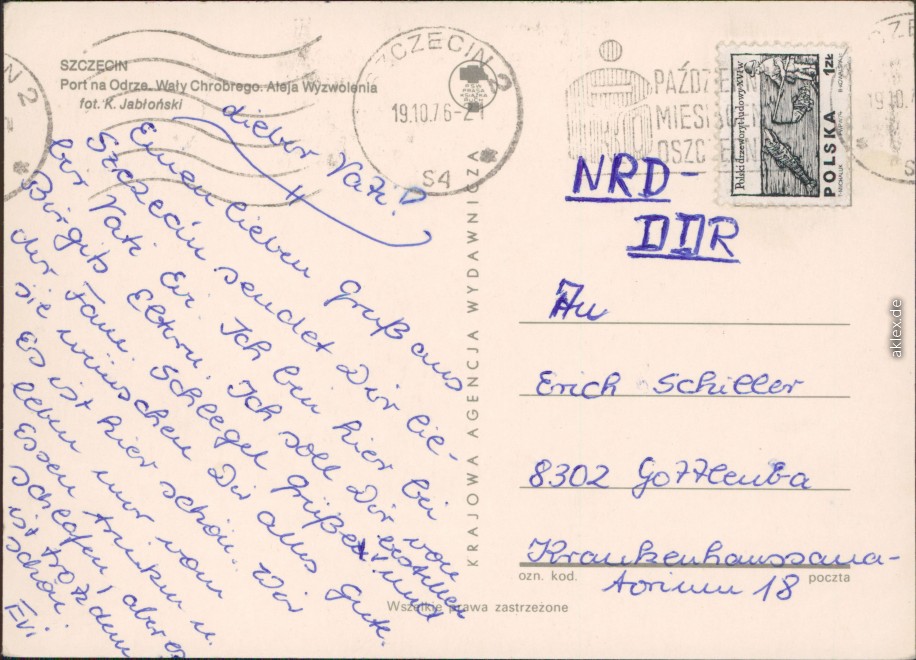 SZCZECIN
Port na Odrze. Wały Chrobrego. Aleja Wyzwolenia
fot. K. Jabłoński
lieber Vati!
Einen lieben Gruß aus
Szczecin sendet Dir lie-
ber Vati Evi. Ich bin hier bei
Birgits Eltern. Ich soll Dir von
der Fam. Schlegel Grüße bestellen und
sie wünschen Dir alles Gute.
Es ist hier schön. Wir
leben nur von
Essen trinken u.
schlafen, aber es
ist trotzdem
schön.
Evi
KRAJOWA AGENCJA WYDAWNICZA
SZCZECIN 2
19.10.76-21
S4
PAŹDZIE
MIESI
OSZCZ
Polski drzeworyt ludowy XVI w
POLSKA 1 ZŁ
NRD-
DDR
An
Erich Schiller
8302 Gottleuba
Krankenhaussana-
torium 18
ozn. kod. poczta
Wszelkie prawa zastrzeżone
aklex.de